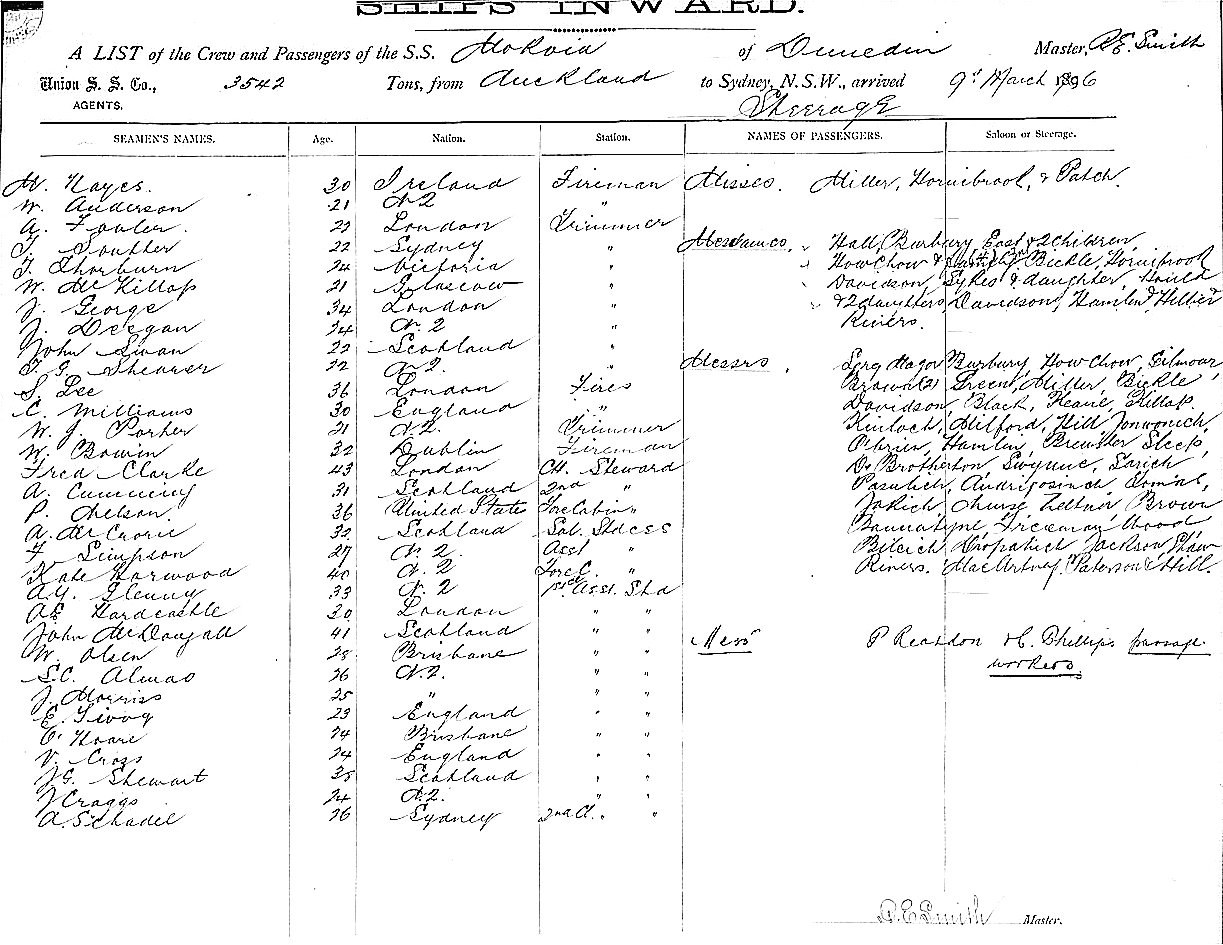 SHIPS INWARD.
A LIST of the Crew and Passengers of the S.S. Mokoia of Dunedin Master, R.E. Smith
Union S. S. Co., 3542 Tons, from Auckland to Sydney, N.S.W., arrived 9th March 1896
AGENTS. Steerage
SEAMEN'S NAMES. Age. Nation. Station. NAMES OF PASSENGERS. Saloon or Steerage.
Hayes. 30 Ireland Fireman Misses. Miller, Hornibrook, & Patch.
W. Anderson 21 N.Z. "
A. Fowler. 22 London Trimmer
Souther 22 Sydney " Mesdames, Hall, Burbury, East & 2 Children,
T. Thorburn 24 Victoria " How Chow & Bickle, Hornibrook
W. McKillop 21 Glascow " Davidson, Sykes & daughter,
J. George 34 London " & 2 daughters, Davidson, Hamlin, Hillier
J. Deegan 24 N.Z. " Rivers.
John Swan 22 Scotland "
Shearer 22 N.Z. " Messrs Serg Magor Burbury, How Chow, Gilmour,
S. Lee 36 London Fires Brown (2) Green, Miller, Bickle,
C. Williams 30 England " Davidson, Black, Keane, Killop
W. J. Porter 21 N.Z. Trimmer Kinloch, Milford, Hill,
W. Bowin 32 Dublin Fireman OBrien, Hamlin, Brewster
Fred Clarke 43 London Ch. Steward Dr Brotherton, Gwynne,
A. Cumming 31 Scotland 2nd "
P. Nelson. 36 United States Forecabin " Brown
A. McCrorie 32 Scotland Sal. Stdess Bannatyne, Freeman, Wood
F. Simpson 27 N.Z. Asst " Jackson, Shaw
Kate Harwood 40 N.Z. ForeC. " Rivers. MacArtney, Paterson & Hill.
A.Y. Glenny 33 N.Z. 1st Asst. Std
A.E. Hardcastle 30 London " "
John McDougall 41 Scotland " " Mess P Reardon & C. Phillips passage
W. Olsen 28 Brisbane " " workers.
S.C. Almao 26 N.Z. " "
J. Morriss 25 " " "
E. 23 England " "
C. Hoare 24 Brisbane " "
V. Cross 24 England " "
J.G. Stewart 38 Scotland " "
J Craggs 24 N.Z. " "
A. Schadel 26 Sydney 2nd A. " "
R.E. Smith Master.